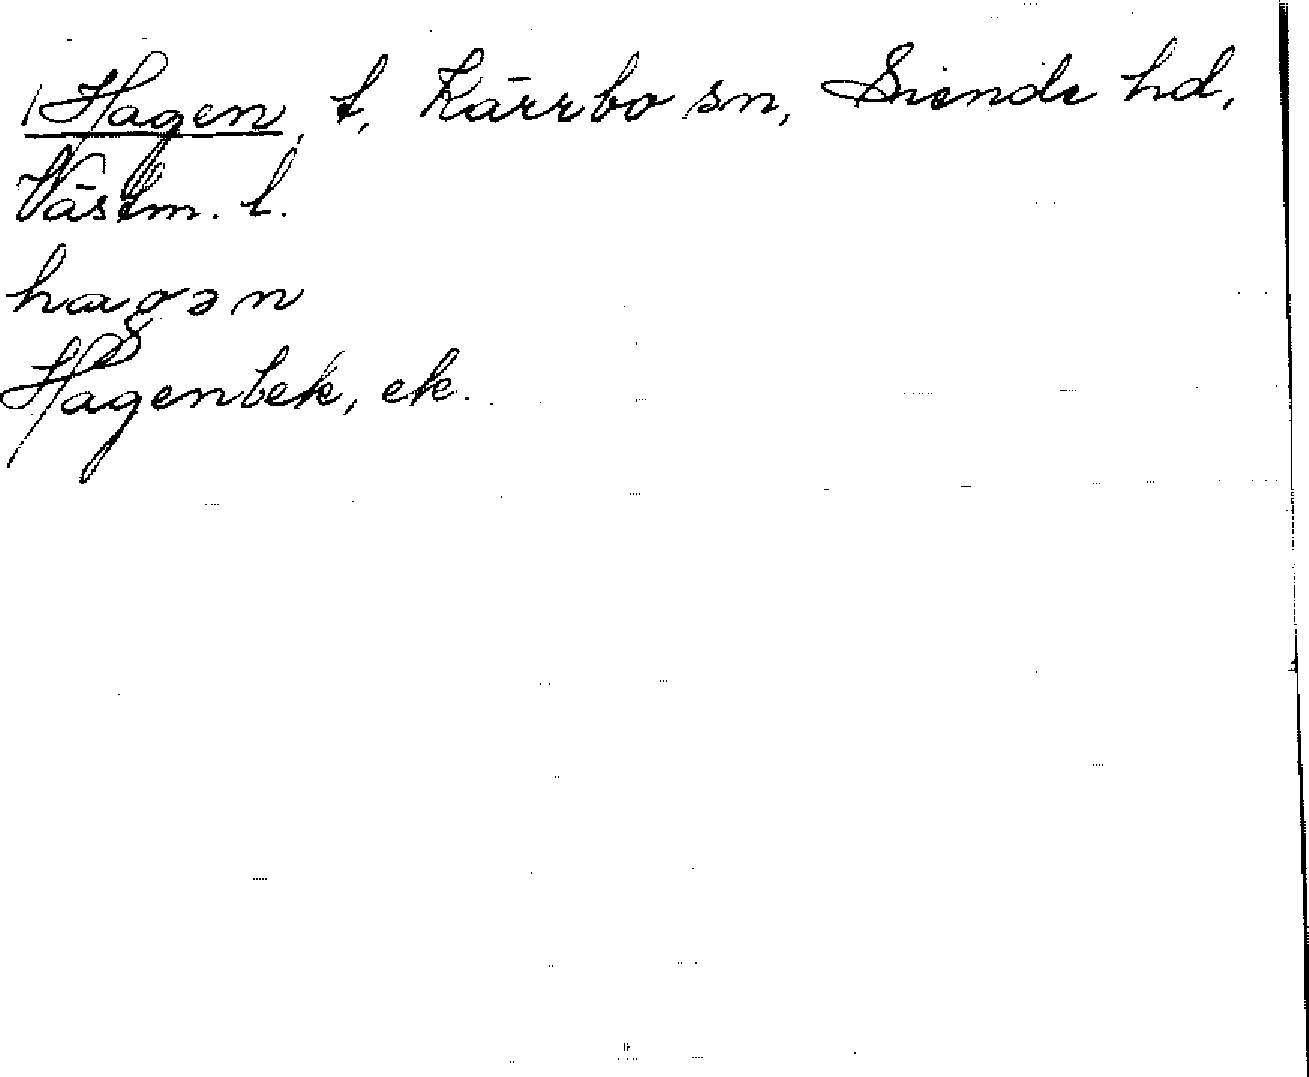 Hagen, t, Kärrbo sn, Siende hd,
Västm. l.
hagən
Hagenbek, ek.